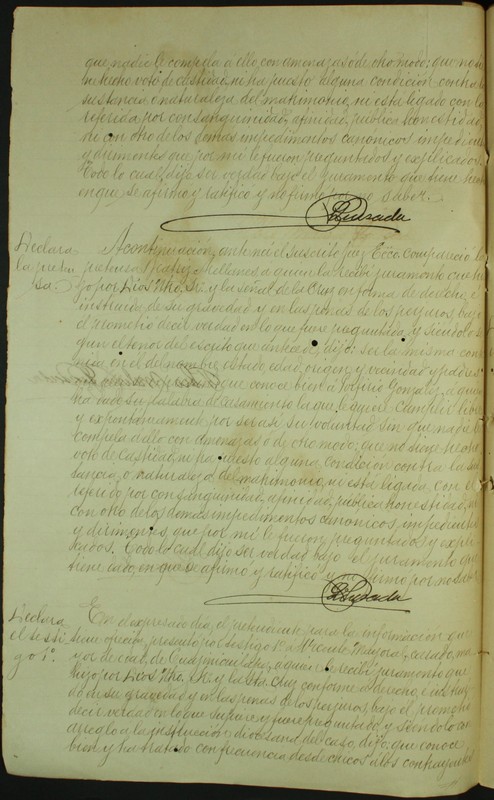 que nadie le compela a ello con amenazas ó de otro modo: que no
ha hecho voto de castidad, ni ha puesto alguna condicion contra la
sustancia o naturaleza del matrimonio, ni está ligado con la
referida por consanguinidad, afinidad, pública honestidad,
ni con otro de los demas impedimentos canónicos, impedientes
y dirimentes que por mí le fueron preguntados y explicados.
Todo lo cual dijo ser verdad bajo el juramento que tiene hecho
en que se afirmó y ratificó y no firmó por no saber.
Quezada
Declara
la preten
sa.
A continuacion, ante mí el suscrito juez Ecco. compareció la
pretensa á quien le recibí juramento que hi
zo por Dios Ntro. Sr. y la señal de la Cruz en forma de derecho, é
instruida de su gravedad y en las penas de los perjuros, bajo
él prometió decir verdad en lo que fuere preguntada, y siéndolo
que el tenor del escrito que antecede, dijo: ser la misma conte
nida en él del nombre, estado, edad, orígen y vecindad y padres
que conoce bien á Gonzalez, á quien
ha dado su palabra de casamiento la que le quiere cumplir libre
y espontaneamente por ser asi su voluntad sin que nadie la
compela á ello con amenazas ó de otro modo: que no tiene hecho
voto de castidad, ni ha puesto alguna condicion contra la sus
tancia, o naturaleza del matrimonio, ni está ligada con el
referido por consanguinidad, afinidad, pública honestidad, ni
con otro de los demas impedimentos canonicos, impedientes
y dirimentes, que por mí le fueron preguntados y expli
cados. Todo lo cual dijo ser verdad bajo el juramento que
tiene dado, en que se afirmó y ratificó y no firmó por no saber.
Quezada
Declara
el testi
go 1º.
En el expresado dia, el pretendiente para la informacion que
tiene ofrecida, presentó por testigo 1º. á Vicente casado, ma
yor de edad, de á quien le recibí juramento que
hizo por Dios Ntro. Sr. y la Sta. Cruz conforme á derecho, é instrui
do de su gravedad y en las penas de los perjuros, bajo él prometió
decir verdad en lo que supiere y fuere preguntado, y siéndolo con
arreglo a la instruccion diocesana del caso, dijo: que conoce
bien y ha tratado con frecuencia desde chicos á los contrayentes